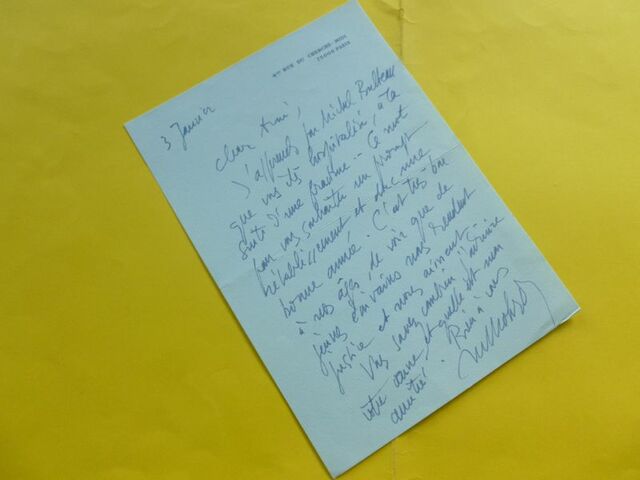 RUE DU CHERCHE-MIDI
75006 PARIS
3 Janvier
Cher Ami,
J'apprends par Michel Bulteau
que vous êtes hospitalisé, à la
suite d'une fracture. Ce mot
pour vous souhaiter un prompt
rétablissement et donc une
bonne année. C'est très bon
à nos âges, de voir que de
jeunes écrivains nous rendent
justice et nous aiment
Vous savez combien j'admire
votre œuvre et quelle est mon
amitié! Bien à vous